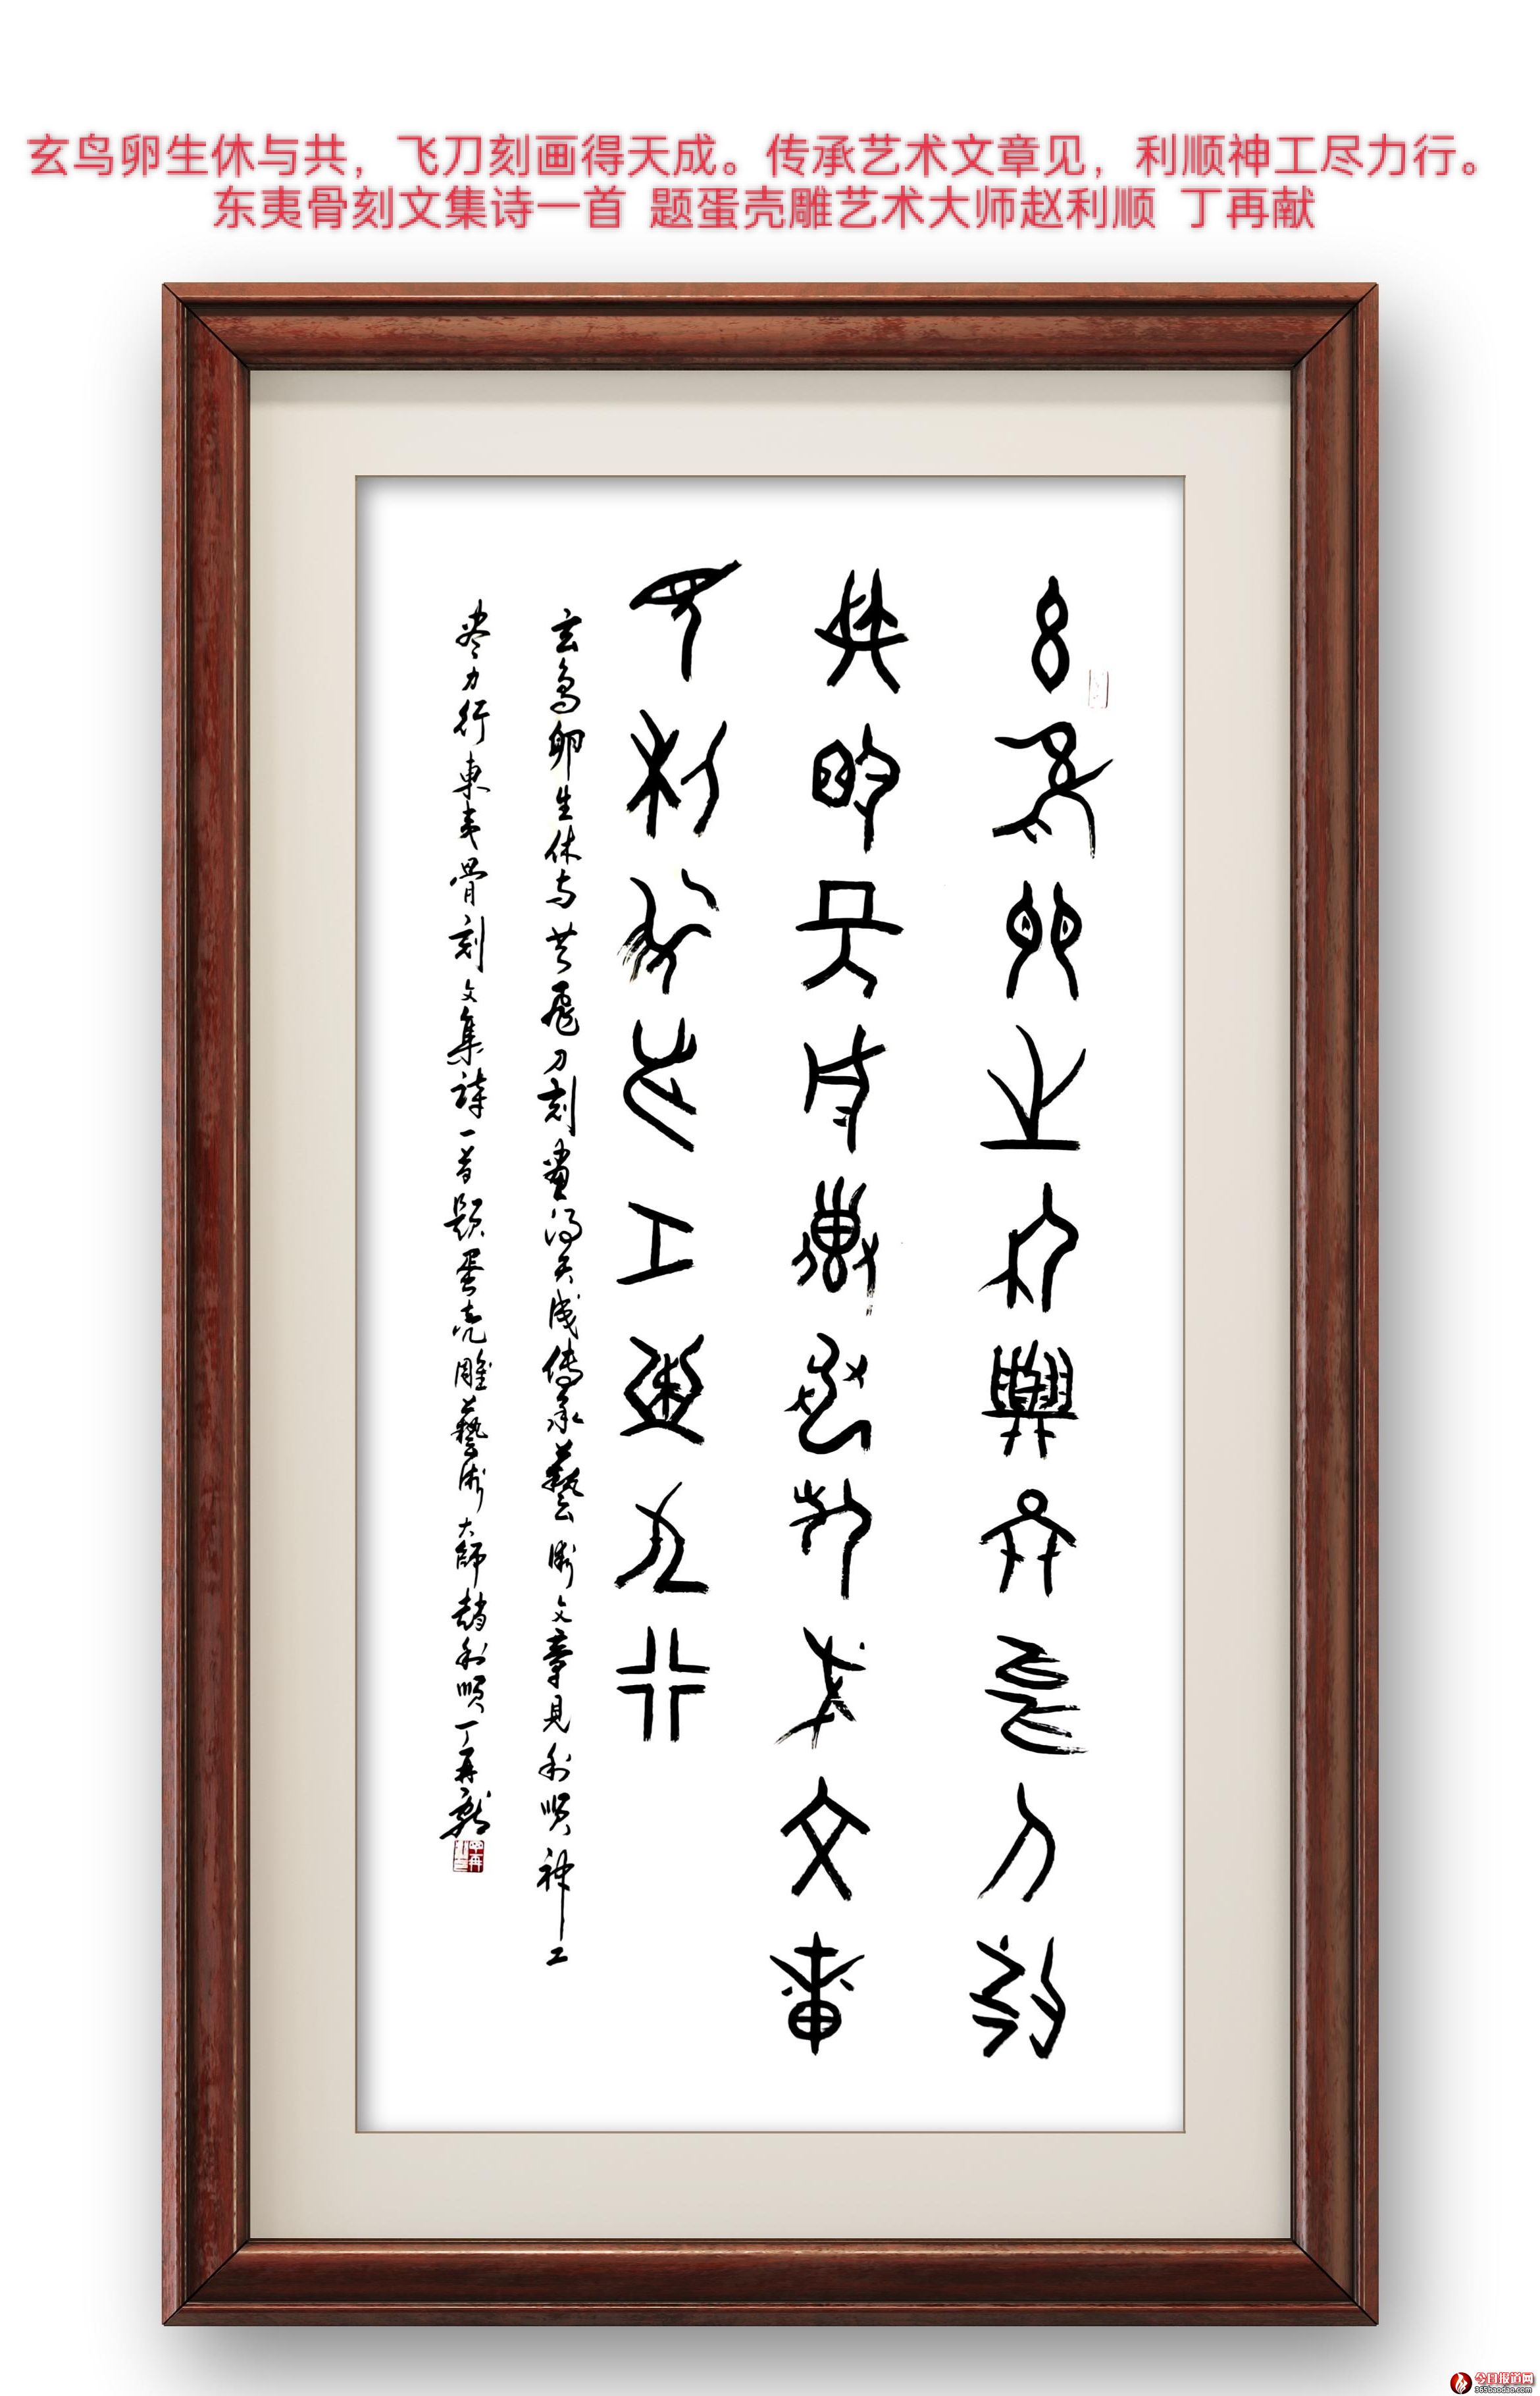 玄鸟卵生休与共，飞刀刻画得天成。传承艺术文章见，利顺神工尽力行。
东夷骨刻文集诗一首 题蛋壳雕艺术大师赵利顺 丁再献
玄鸟卵生休与共飛刀刻
畫得天成傳承藝術文章
見利順神工盡力行
玄鸟卵生休与共飛刀刻畫得天成傳承藝術文章見利順神工
盡力行東夷骨刻文集詩一首題蛋壳雕藝術大師趙利順丁再獻
今日报道网
365baodao.com